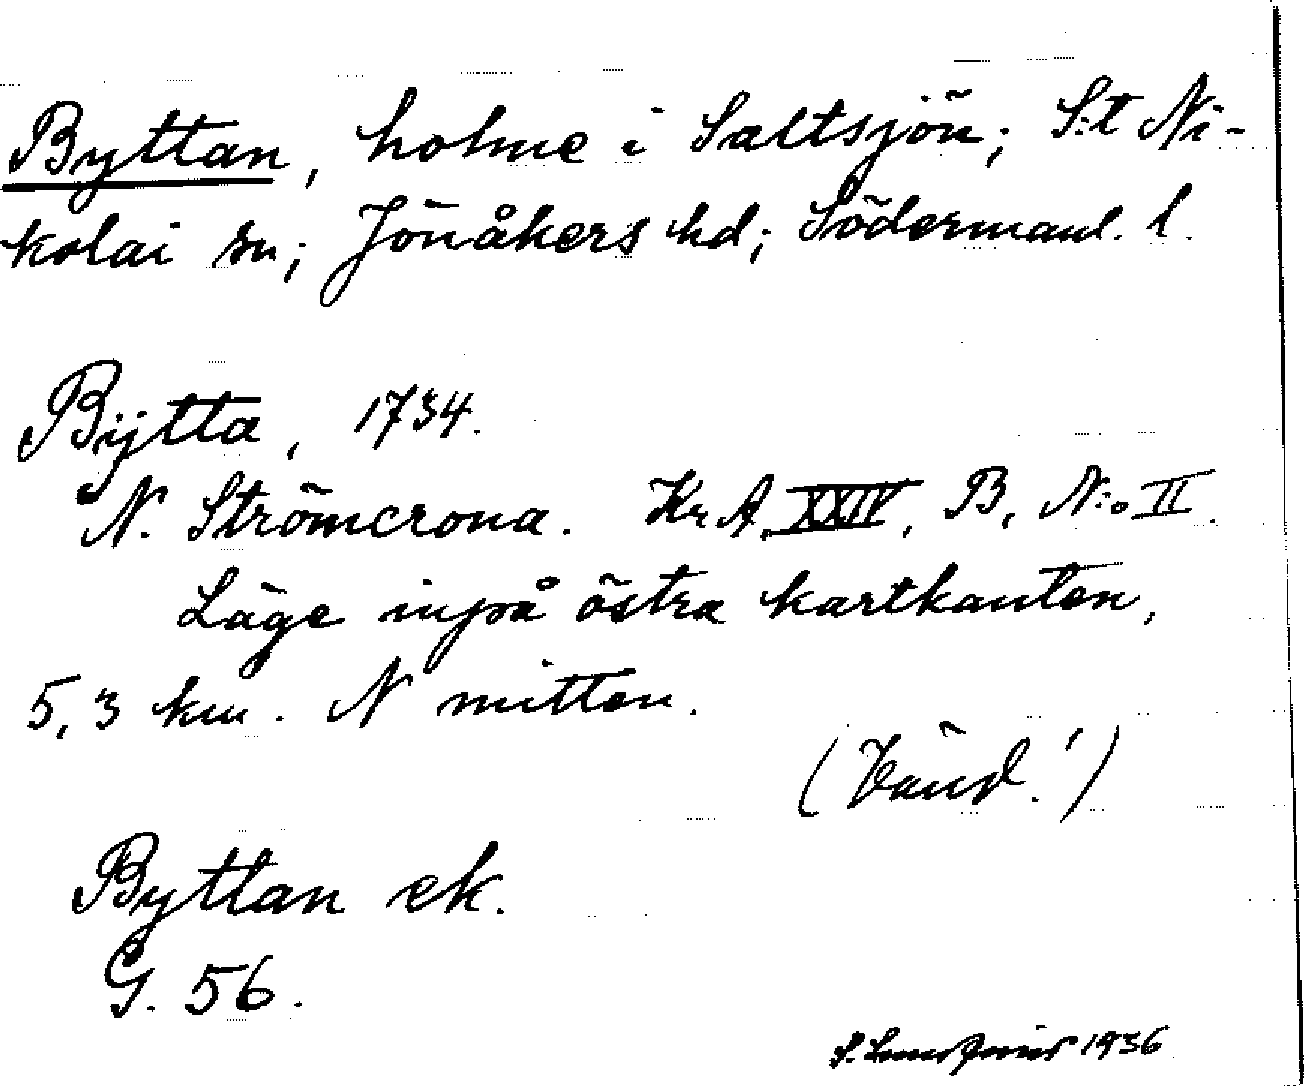 Byttan, holme i Saltsjön; S:t Ni-
kolai sn; Jönåkers hd; Södermanl. l.
Bÿtta, 1734.
N. Strömcrona. Kr. A. XXIV, B, N:o II.
Läge inpå östra kartkanten,
5,3 km. N mitten.
(Vänd!)
Byttan ek.
G. 56.
1936